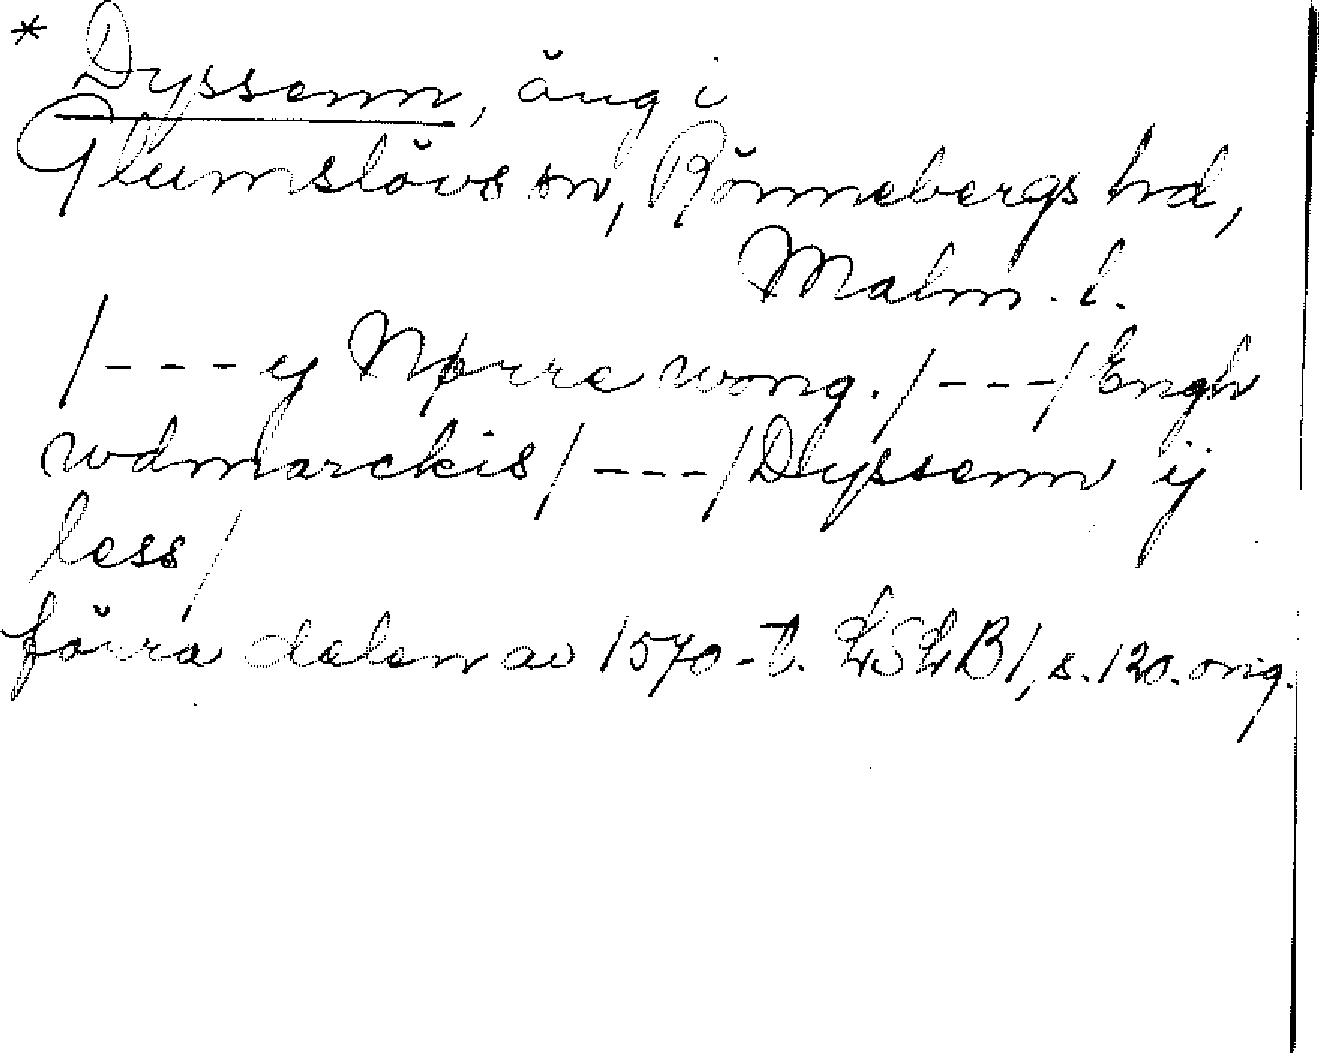 * Dyssenn, äng i
Glumslövs sn, Rönnebergs hd,
Malm. l.
/---y Nørre wong. /---/ Engh
wdmarckis /---/ Dyssenn ij
less /
förra delen av 1570-t. LSLB 1, s. 120. orig.